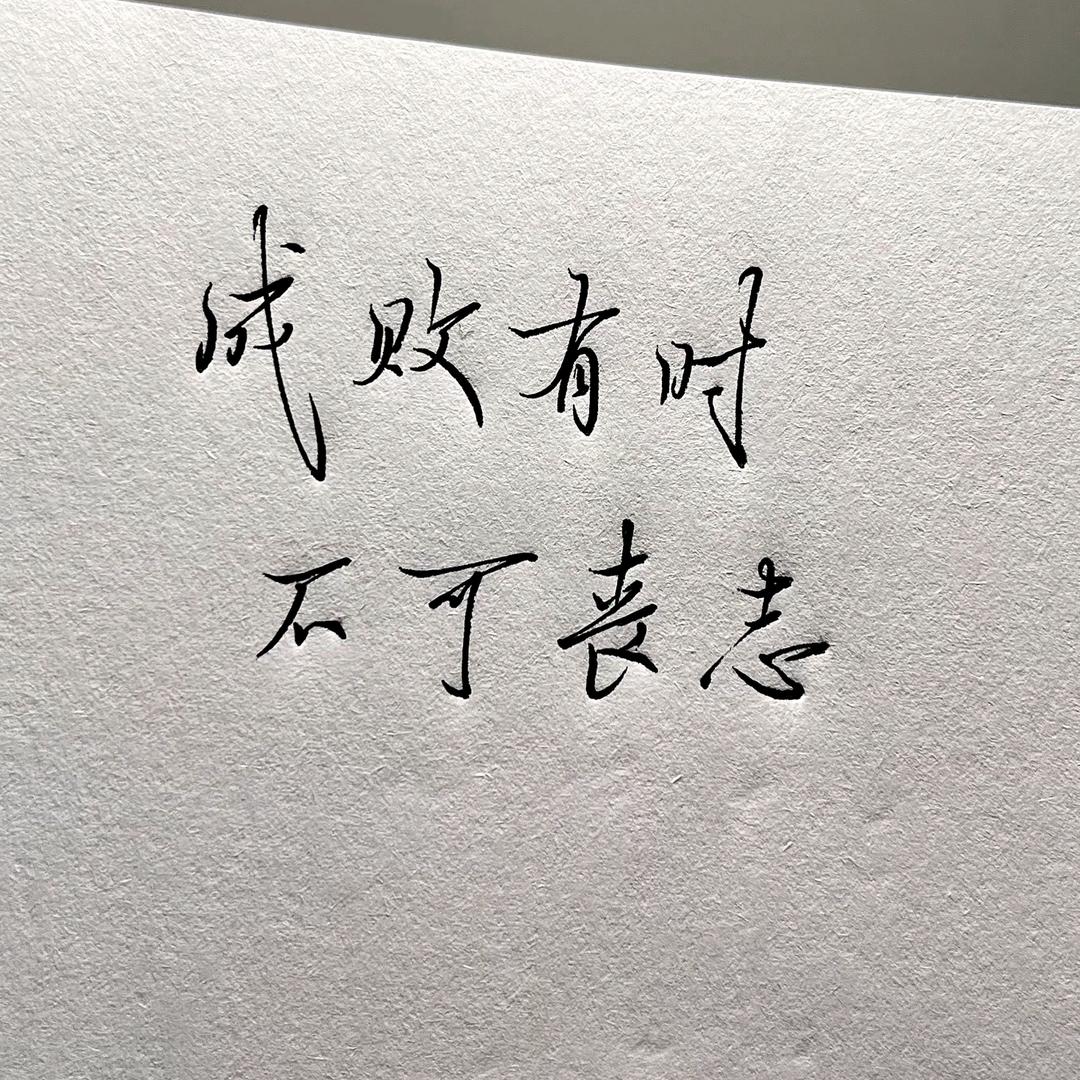 成败有时
不可丧志